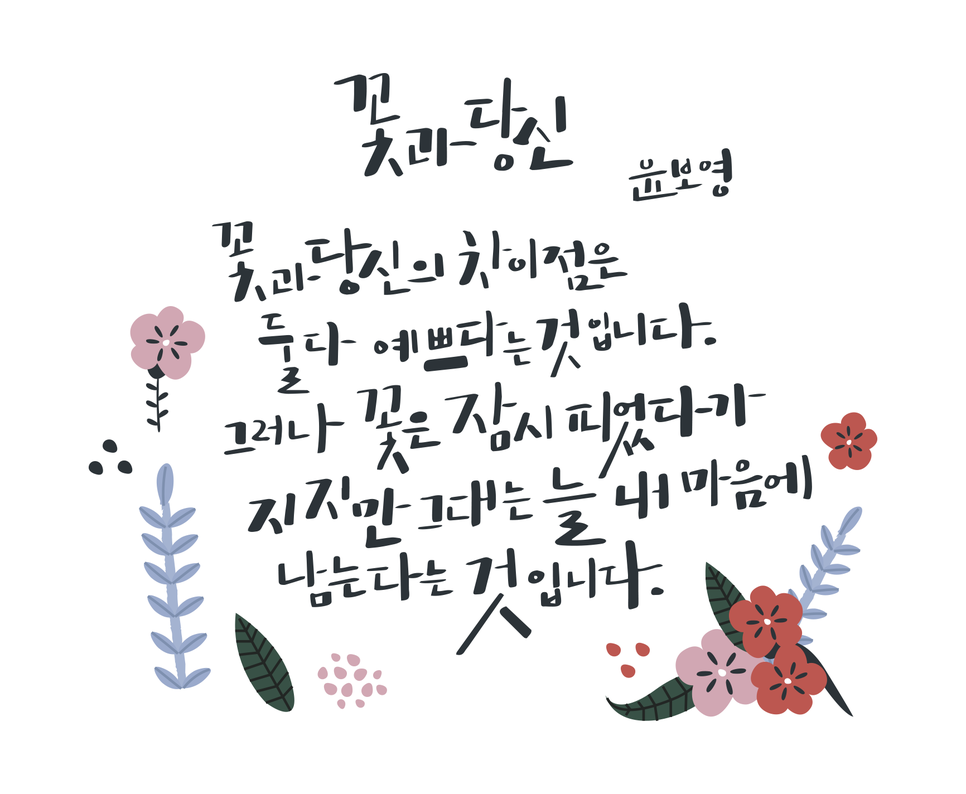 꽃과 당신
윤보영
꽃과 당신의 차이점은
둘 다 예쁘다는 것입니다.
그러나 꽃은 잠시 피었다가
지짓만 그대는 늘 내 마음에
남는다는 것입니다.